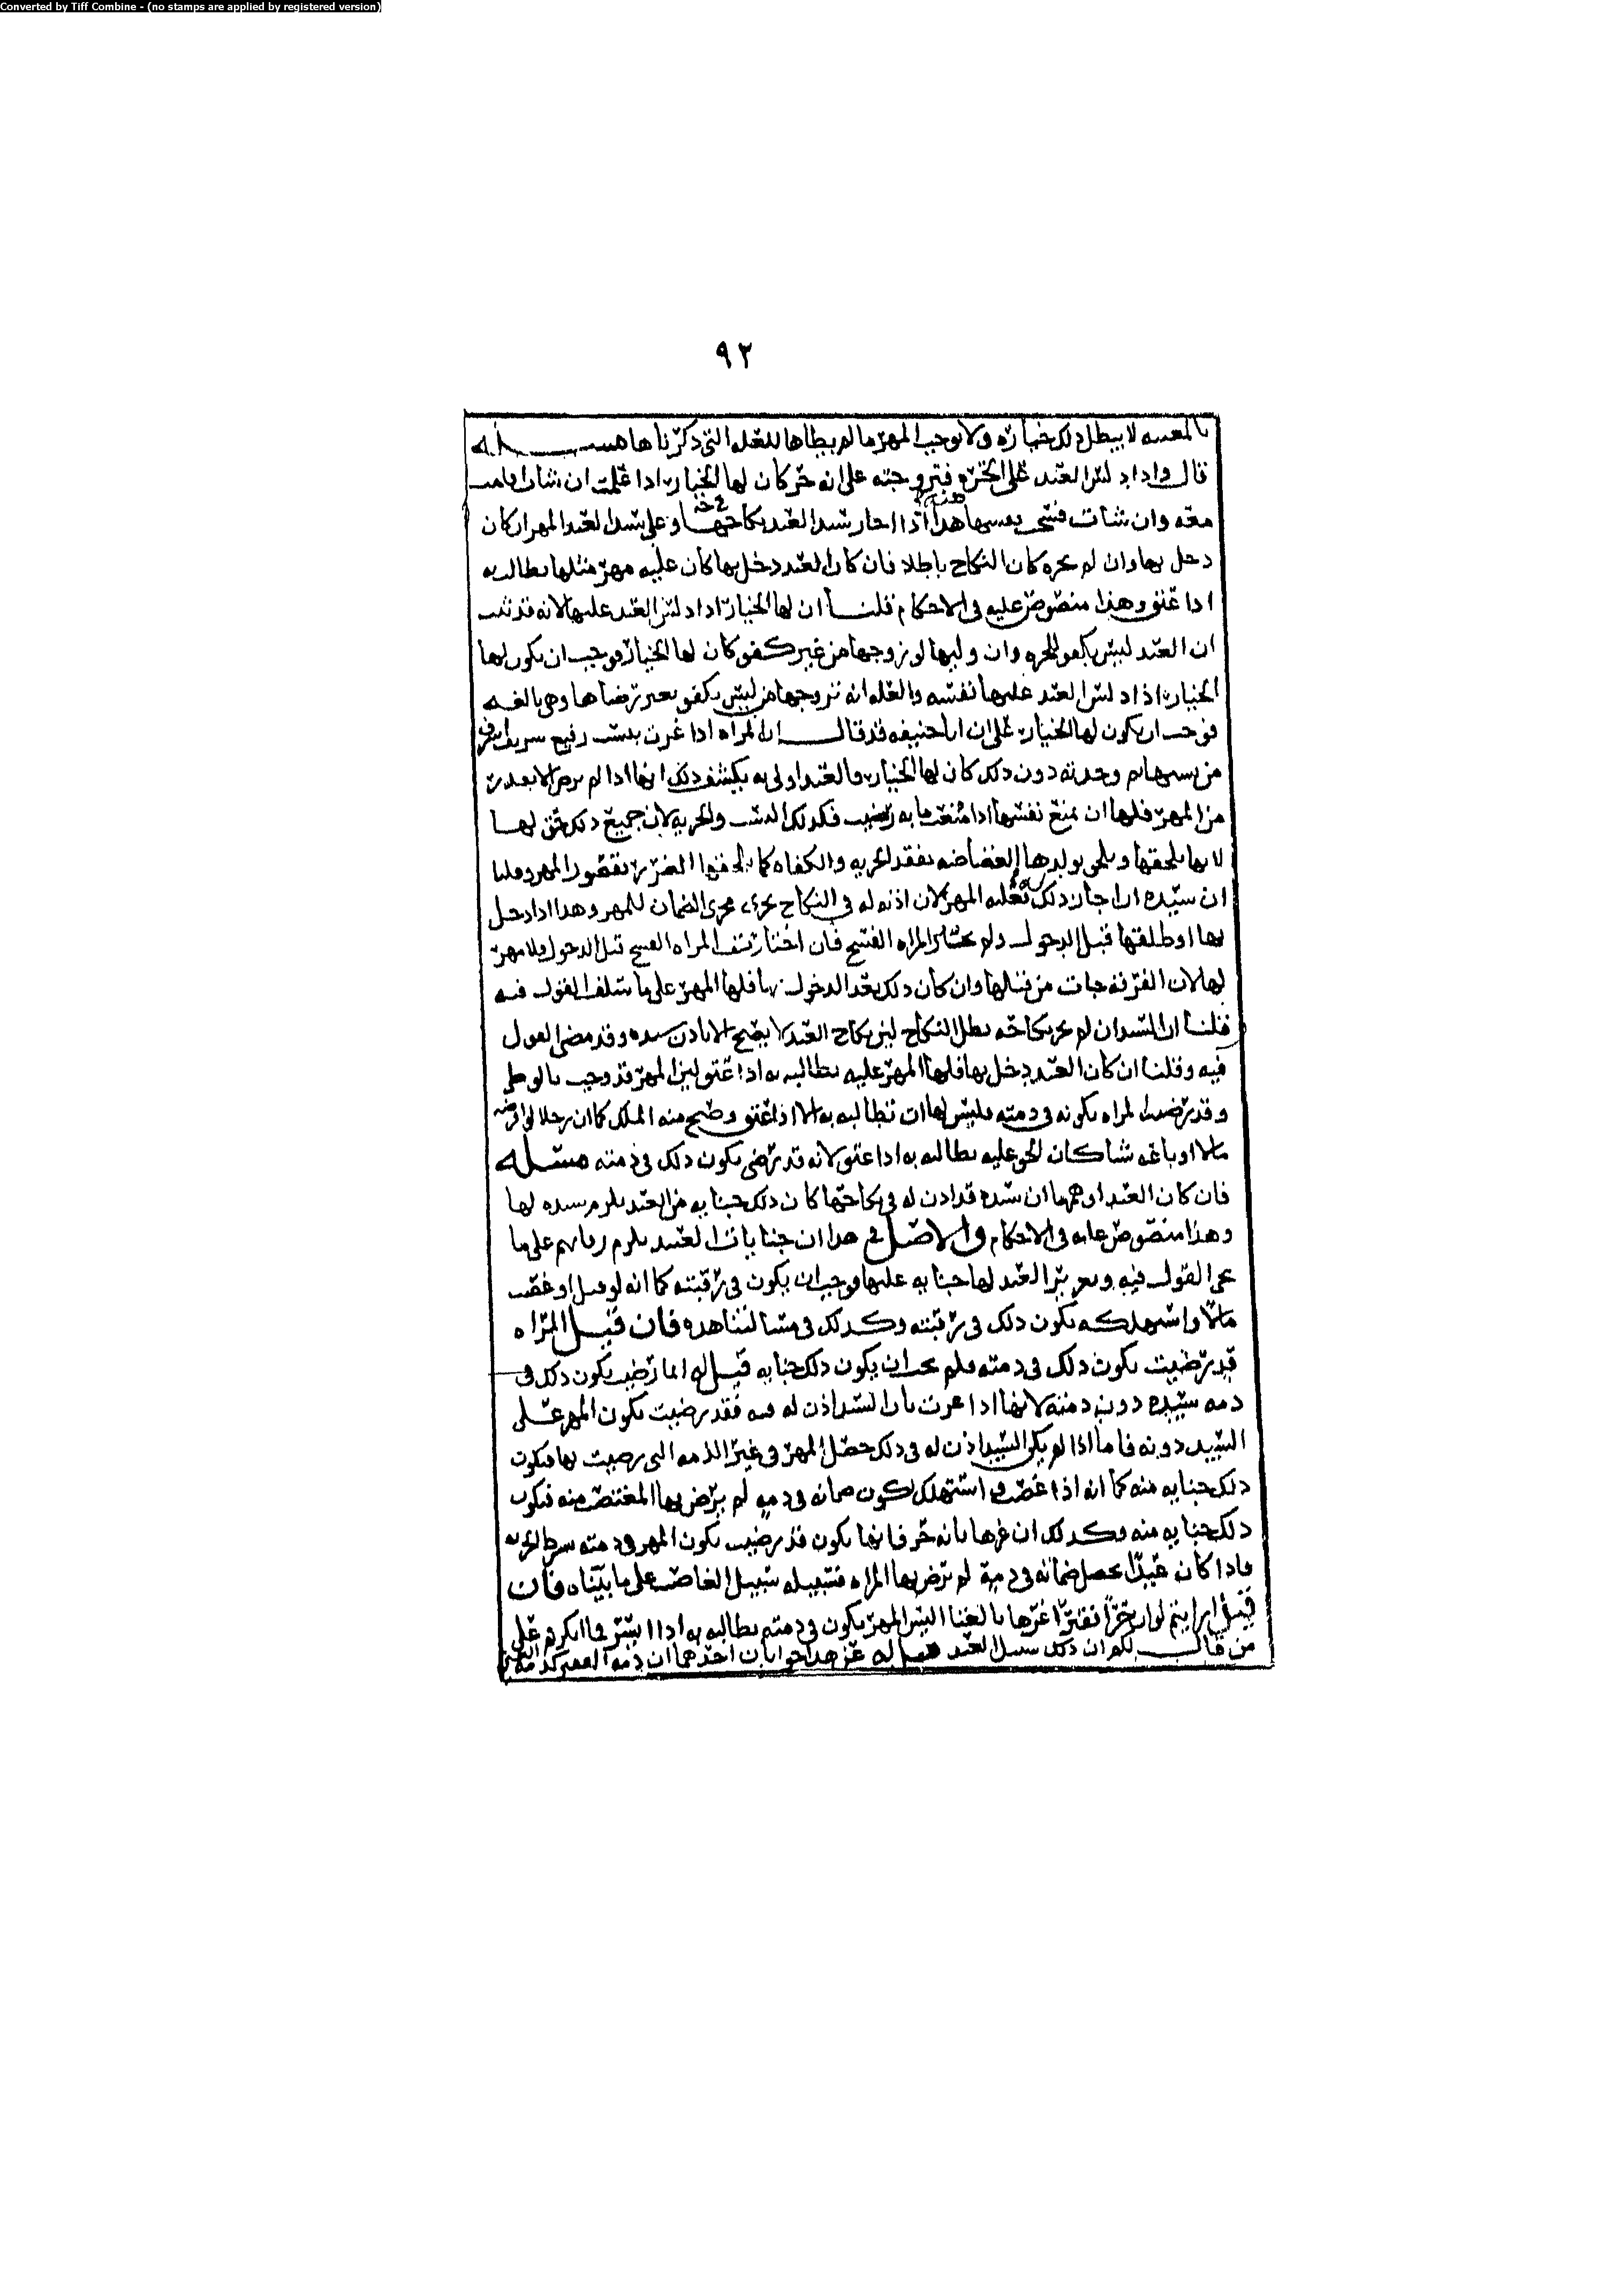 Converted by Tiff Combine - (no stamps are applied by registered version)
٩٢
بالمعسه لا يبطل ذلك خياره ولا يوجب المهر ما لم يطاها للعله التي ذكرناها مسـله
قال واذا دلس العبد على الحره فتزوجته على انه حر كان لها الخيار اذا علمت ان شات اقامت
معه وان شات فسخت نفسها هذا اذا اجاز سيد العبد نكاحها وعلى سيد العبد المهر ان كان
دخل بها وان لم يجزه كان النكاح باطلا فان كان العبد دخل بها كان عليه مهر مثلها يطالب به
اذا عتق وهذا منصوص عليه في الاحكام قلنا ان لها الخيار اذا دلس العبد عليها لانه قد ثبت
ان العبد ليس بكفو للحره وان وليها لو زوجها من غير كفو كان لها الخيار فوجب ان يكون لها
الخيار اذا دلس العبد عليها نفسه والعله انه تزوجها من ليس بكفو بغير رضاها وهي بالغه
فوجب ان يكون لها الخيار على ان ابا حنيفه قد قال ان المراه اذا غرت بنسب رفيع شريف
من نسبها ثم وجدته دون ذلك كان لها الخيار فالعبد اولى به يكشف ذلك انها اذا لم ترض الا بقدر
من المهر فلها ان تمنع نفسها اذا منعت ما به رضيت فكذلك النسب والحريه لان جميع ذلك حق لها
لانها يلحقها ويلحق بولدها الغضاضه بفقد الحريه والكفاه كما يلحقها الضرر بقصور المهر وقلنا
ان سيده ان اجاز ذلك فعليه المهر لان اذنه له في النكاح يجري مجرى الضمان للمهر وهذا اذا دخل
بها او طلقها قبل الدخول ولم تختار المراه الفسخ فان اختارت المراه الفسخ قبل الدخول فلا مهر
لها لان الفرقه جات من قبلها وان كان ذلك بعد الدخول بها فلها المهر على ما سلف القول فيه
قلنا ان السيد ان لم يجز نكاحه بطل النكاح لان نكاح العبد لا يصح الا باذن سيده وقد مضى القول
فيه وقلنا ان كان العبد دخل بها فلها المهر عليه تطالبه به اذا عتق لان المهر قد وجب بالوطي
وقد رضيت المراه بكونه في ذمته فليس لها ان تطالبه به الا اذا عتق وصح منه الملك كما ان رجلا لو اقرضه
مالا او باعه شا كان الحق عليه يطالبه به اذا عتق لانه قد رضي بكون ذلك في ذمته مسـله
فان كان العبد اوهمها ان سيده قد اذن له في نكاحها كان ذلك جنايه من العبد يلزم سيده لها
وهذا منصوص عليه في الاحكام والاصل في هذا ان جنايات العبيد يلزم رقابهم على ما
يجي القول فيه وتغرير العبد لها جنايه عليها فوجب ان يكون في رقبته كما انه لو قتل او غصب
مالا واستهلكه يكون ذلك في رقبته وكذلك في مسالتنا هذه فان قيل المراه
قد رضيت بكون ذلك في ذمته فلم يجب ان يكون ذلك جنايه قيل له انما رضيت بكون ذلك في
ذمه سيده دون ذمته لانها اذا غرت بان السيد اذن له فيه فقد رضيت بكون المهر على
السيد دونه فاما اذا لم يكن السيد اذن له في ذلك حصل المهر في غير الذمه التي رضيت بها فيكون
ذلك جنايه منه كما انه اذا غصب واستهلك يكون ضمانه في ذمه لم يرض بها المغتصب منه فيكون
ذلك جنايه منه وكذلك ان غرها بانه حر فانها تكون قد رضيت بكون المهر في ذمته بشرط الحريه
فاذا كان عبدا يحصل ضمانه في ذمة لم ترض بها المراه فسبيله سبيل الغاصب على ما بيناه فان
قيل ارايتم لو ان حرا فقيرا غرها بالغنا اليس المهر يكون في ذمته يطالب به اذا ايسر فما انكرتم على
من قال لكم ان ذلك سبيل العبد قيل له عن هذا جوابان احدهما ان ذمه الفقير كذمه